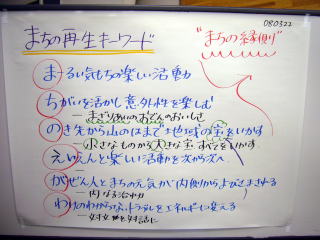 080322
まちの再生キーワード
"まちの縁側"
まるい気もちの楽しい活動
ちがいを活かし意外性を楽しむ
― まざりあいのおでんのおいしさ
のき先から山のはまで地域の宝をいかす
― 小さなものから大きな宝 すべてをいかす
えいえんと楽しい活動を次から次へ
がぜん人とまちの元気が内側からよびさまされる
― 内なる治ゆ力
わけのわからないトラブルをエネルギーに変える
― 対立を対話に